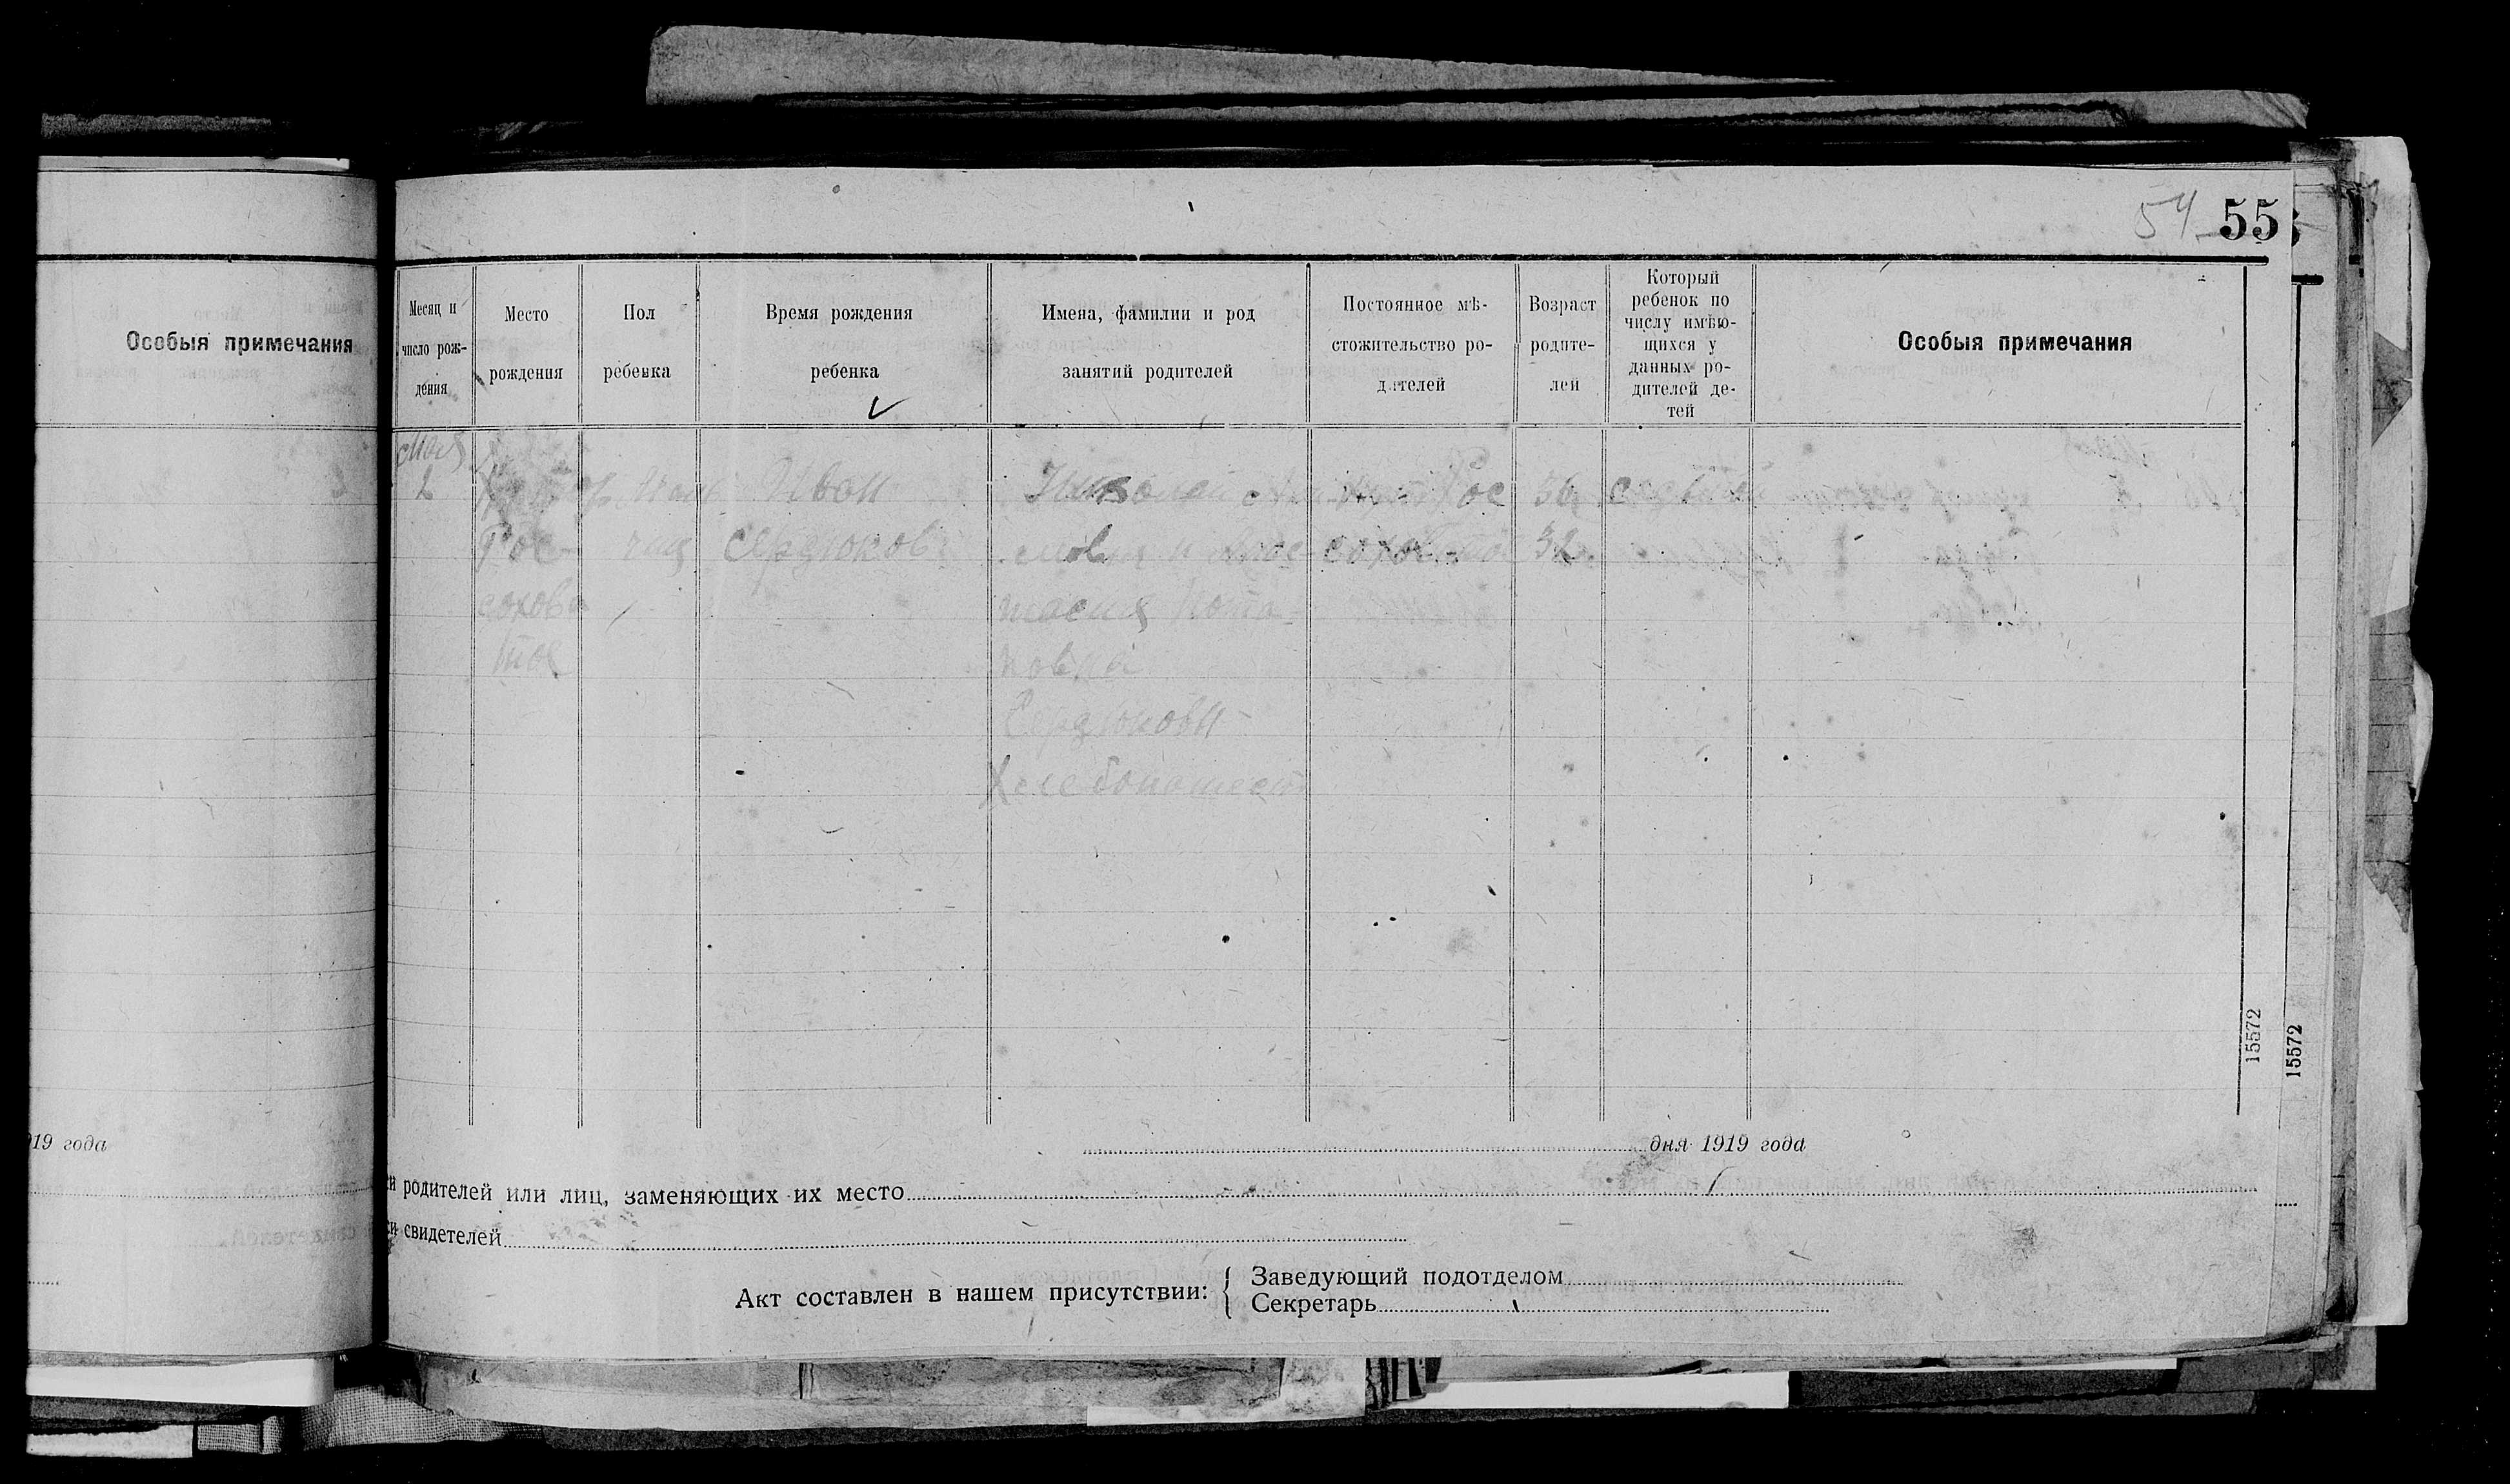 54 55
Особыя примечания
Месяц и
число рож-
дения
Место
рождения
Пол
ребенка
Время рождения
ребенка
Имена, фамилии и род
занятий родителей
Постоянное мѣ-
стожительство ро-
дителей
Возраст
родите-
лей
Который
ребенок по
числу имѣю-
щихся у
данных ро-
дителей де-
тей
Особыя примечания
Мая
2
Рос-
сохова
тое
Маль
чик
Иван
Сердюков
Николай
и Анас-
тасия Пота-
повна
Сердюковы
Хлебопашест
Рос
соховатое
36
32
седьмой
15572
15572
19 года
дня 1919 года
и родителей или лиц, заменяющих их место
и свидетелей
Акт составлен в нашем присутствии:
Заведующий подотделом
Секретарь